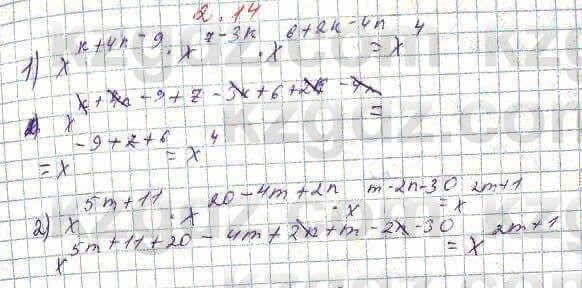 2.14
1) x^{k+4n-9} · x^{7-3k} · x^{6+2k-4n} = x^4
x^{k+4n-9+7-3k+6+2k-4n} =
= x^{-9+7+6} = x^4
2) x^{5m+11} · x^{20-4m+2n} · x^{m-2n-30} = x^{2m+1}
x^{5m+11+20-4m+2n+m-2n-30} = x^{2m+1}